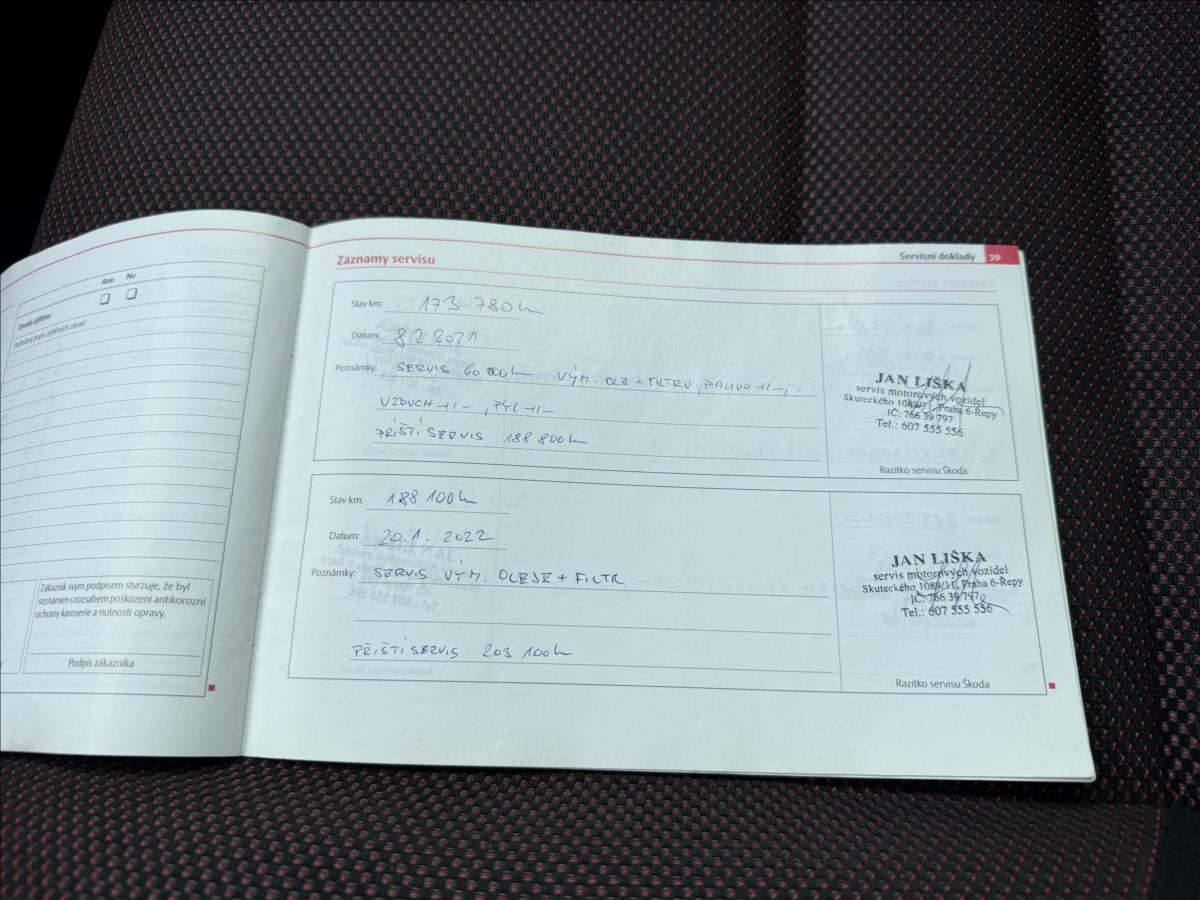 Ano Ne
Závada zjištěna
Podrobný popis zjištěných závad:
Zákazník svým podpisem stvrzuje, že byl
seznámen s rozsahem poškození antikorozní
ochrany karoserie a nutností opravy.
Podpis zákazníka
Servisní doklady 39
Záznamy servisu
Stav km: 173 780km
Datum: 8.2 2021
Poznámky: SERVIS 60 000km VÝM. OLE + FILTRU, PALIVO -11-,
VZDUCH -11-, PYL -11-
PŘÍŠTÍ SERVIS 188 800km
JAN LIŠKA
servis motorových vozidel
Skuteckého 1089/11, Praha 6-Řepy
IČ: 766 39 797
Tel.: 607 555 556
Razítko servisu Škoda
Stav km: 188 100km
Datum: 20.1. 2022
Poznámky: SERVIS VÝM. OLEJE + FILTR
PŘÍŠTÍ SERVIS 203 100km
JAN LIŠKA
servis motorových vozidel
Skuteckého 1089/11, Praha 6-Řepy
IČ: 766 39 797
Tel.: 607 555 556
Razítko servisu Škoda